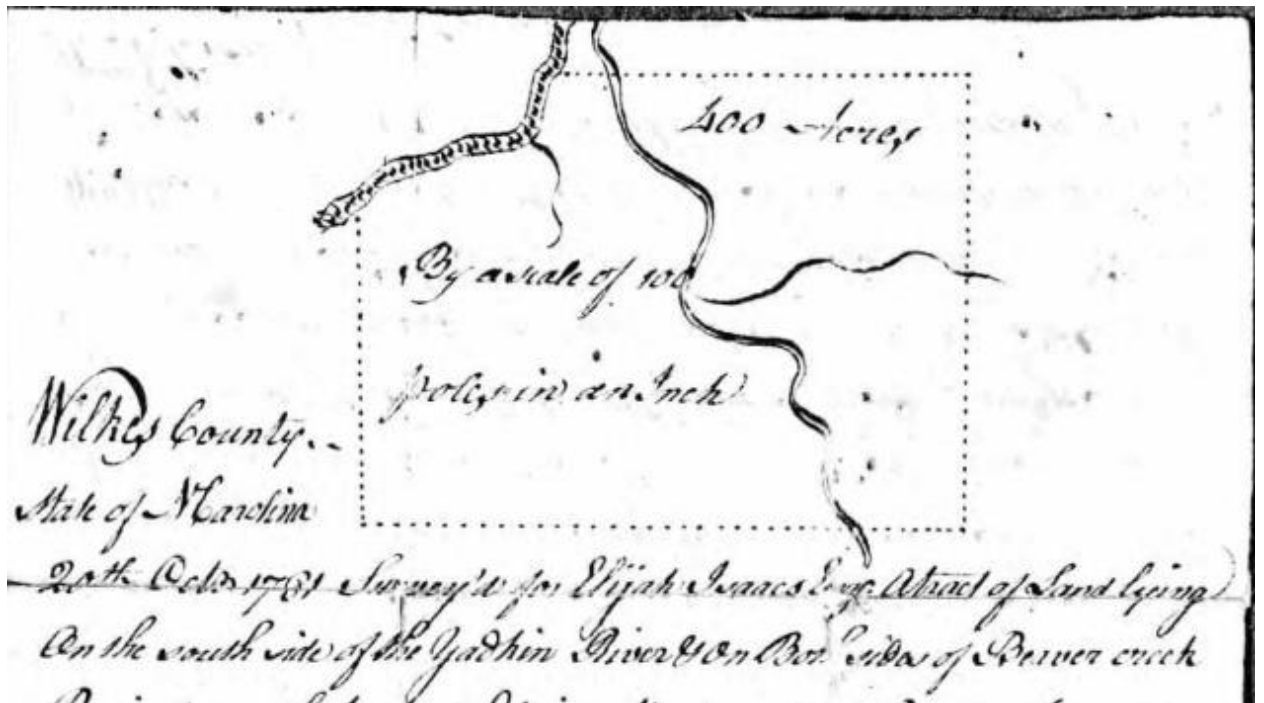 400 Acres
By a scale of 100
poles in an Inch
Wilkes County
State of N Carolina
20th Octr 1781 Survey'd for Elijah Isaacs Esqr. A tract of Land lying
On the south side of the Yadkin River & On Both sides of Beaver creek